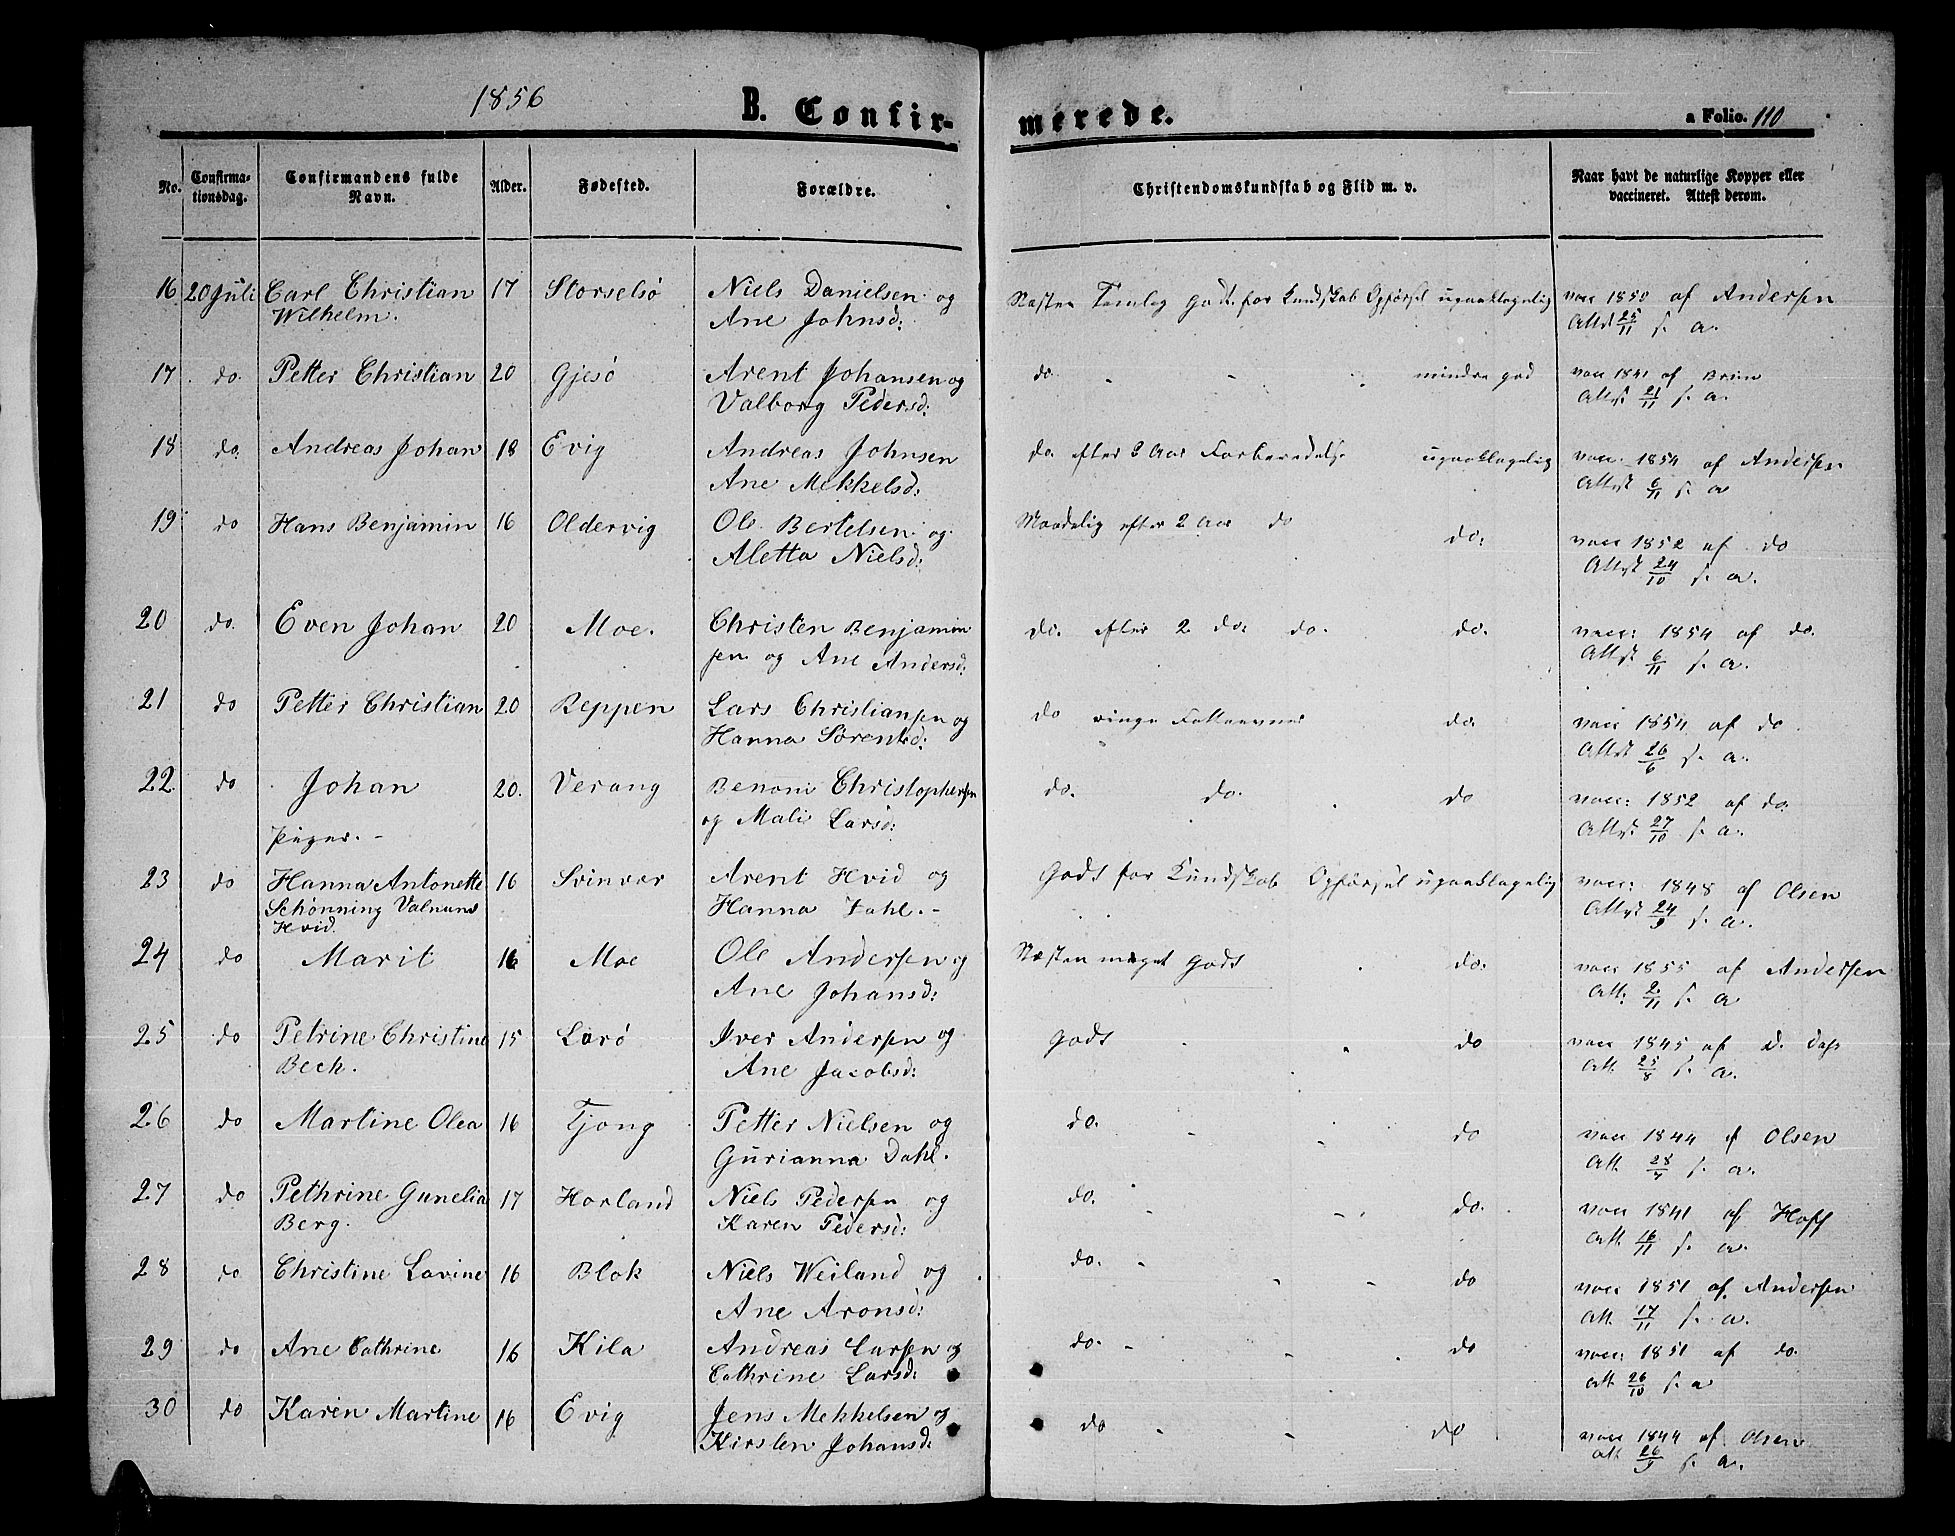 1856
B. Confirmerede.
a Folio. 110
No. Confirmationsdag. Confirmandens fulde Navn. Alder. Fødested. Forældre. Christendomskundskab og Flid m. v. Naar havt de naturlige Kopper eller vaccineret. Attest derom.
16 20 Juli Carl Christian 17 Storselsø Niels Danielsen og Næsten Temlig godt for Kundskab Opførsel upaaklagelig vacc 1850 af Andersen
Wilhelm. Ane Johnsd: Attst 25/11 s. a.
17 do. Petter Christian 20 Gjesø Arent Johansen og do. mindre god vacc 1841 af Brun
Valborg Pedersd: Attst 21/11 s. a.
18 do. Andreas Johan 18 Evig Andreas Johnsen do. efter 3 Aar Forberedelse upaaklagelig vacc. 1854 af Andersen
Ane Mekkelsd: Attst 6/11 s. a
19 do Hans Benjamin 16 Oldervig Ole Bertelsen og Maadelig efter 2 Aar do do: vacc 1852 af do
Aletta Nielsd: Attst 24/10 s. a.
20 do. Even Johan 20 Moe. Christen Benjamin do. efter 2 do: do. do. vacc: 1854 af do.
sen og Ane Andersd: Attst 6/11 s. a.
21 do Petter Christian 20 Reppen Lars Christiansen og do ringe Fatteevner do. vacc 1854 af do.
Hanna Sørensd: Attst 26/6 s. a.
22 do Johan 20. Verang Benoni Christophersen do. do. do vacc: 1852 af do.
og Mali Larsd: Attst 27/10 s. a.
Piger. -
23 do Hanna Antonette 16 Svinvær Arent Hvid og Godt for Kundskab Opførsel upaaklagelig vacc: 1848 af Olsen
Schønning Hanna Dahl. - Attst 24/9 s. a.
Hvid.
24 do Marit 16 Moe Ole Andersen og Næsten meget godt do. vacc 1855 af Andersen
Ane Johansd: Att: 2/11 s. a
25 do Petrine Christine 15 Larø Iver Andersen og Godt do vacc 1845 af D. Dass
Bech. Ane Jacobsd: Att. 25/8 s. a.
26 do Martine Olea 16 Tjong Petter Nielsen og do. do vacc 1844 af Olsen
Gurianna Dahl. Att. s. a.
27 do Pethrine Gunelia 17 Horland Niels Pedersen og do. do. vacc 1841 af Hoff
Berg. Karen Pedersd: Att. 16/11 s. a.
28 do Christine Lovine 16 Blok Niels Weiland og do. do vacc 1851 af Andersen
Ane Aronsd: Att. 17/11 s. a.
29 do Ane Cathrine 16 Kila Andreas Larsen og do. do vacc: 1851 af do.
Cathrine Larsd: Att. 26/10 s. a
30 do Karen Martine 16 Evig Jens Mekkelsen og do do vacc 1844 af Olsen
Kirsten Johansd: Att. 26/9 s. a.